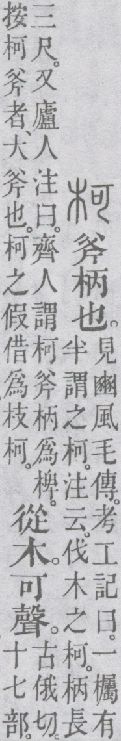 柯 斧柄也。見豳風毛傳。考工記曰。一欘有
半謂之柯。注云。伐木之柯。柄長
三尺。又廬人注曰。齊人謂柯斧柄爲椑。
按柯斧者大斧也。柯之假借爲枝柯。
從木。可聲。古俄切。
十七部。